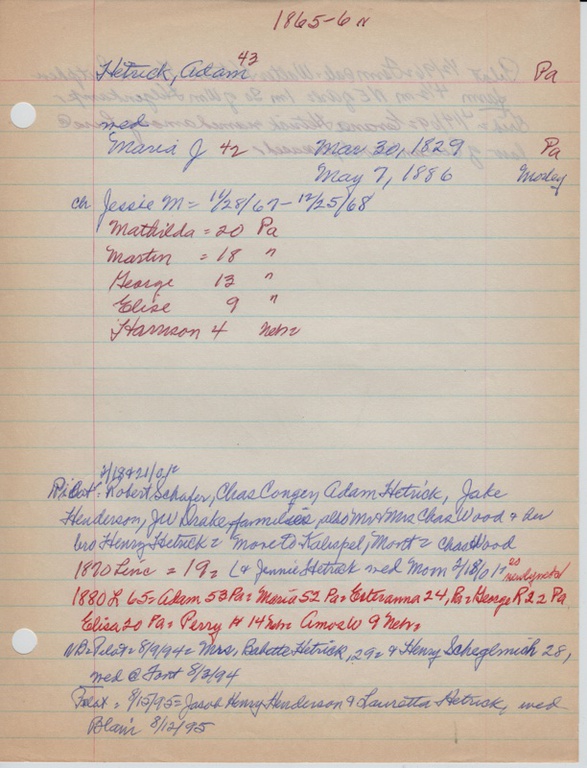 1865-6 N
Hetrick, Adam 43 Pa
wed
Maria J 42 Mar 30, 1829 Pa
May 7, 1886 Mosley
ch Jessie M = 11/28/67 - 12/25/68
Mathilda = 20 Pa
Martin = 18 "
George 13 "
Elise 9 "
Harrison 4 Nebr
2/18&21/01=
Pilot = Robert Schafer, Chas Conger, Adam Hetrick, Jake
Henderson, JW Drake families also Mr & Mrs Chas Wood & her
bro Henry Hetrick = move to Kalispel, Mont = Chas Wood
1870 Linc = 19 = L & Jennie Hetrick wed Mom 2/18/01=
1880 L 65 = Adam 53 Pa = Maria 52 Pa = Esteranna 24, Pa = George R 22 Pa
Elisa 20 Pa = Perry H 14 Nebr Amos W 9 Nebr
NB = Pilot = 8/9/94 = Mrs. Babette Hetrick, 29 = & Henry Scheglmich 28,
wed @ Font 8/3/94
Pilot = 8/15/95 = Jacob Henry Henderson & Lauretta Hetrick, wed
Blair 8/12/95